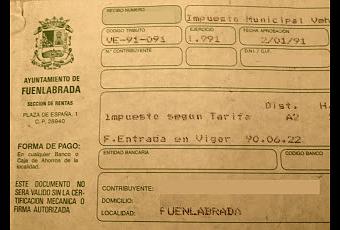 RECIBO NUMERO
Impuesto Municipal Veh
CODIGO TRIBUTO EJERCICIO FECHA APROBACION
VE-91-091 1.991 2/01/91
N.º CONTRIBUYENTE D.N.I./C.I.F.
AYUNTAMIENTO DE
FUENLABRADA
SECCION DE RENTAS
PLAZA DE ESPAÑA, 1
C. P. 28940
Dist. H.
Impuesto segun Tarifa A2
F.Entrada en Vigor 90.06.22
FORMA DE PAGO:
En cualquier Banco o
Caja de Ahorros de la
localidad.
ENTIDAD BANCARIA CODIGO BANCO
ESTE DOCUMENTO NO
SERA VALIDO SIN LA CER-
TIFICACION MECANICA O
FIRMA AUTORIZADA
CONTRIBUYENTE:
DOMICILIO:
LOCALIDAD: FUENLABRADA